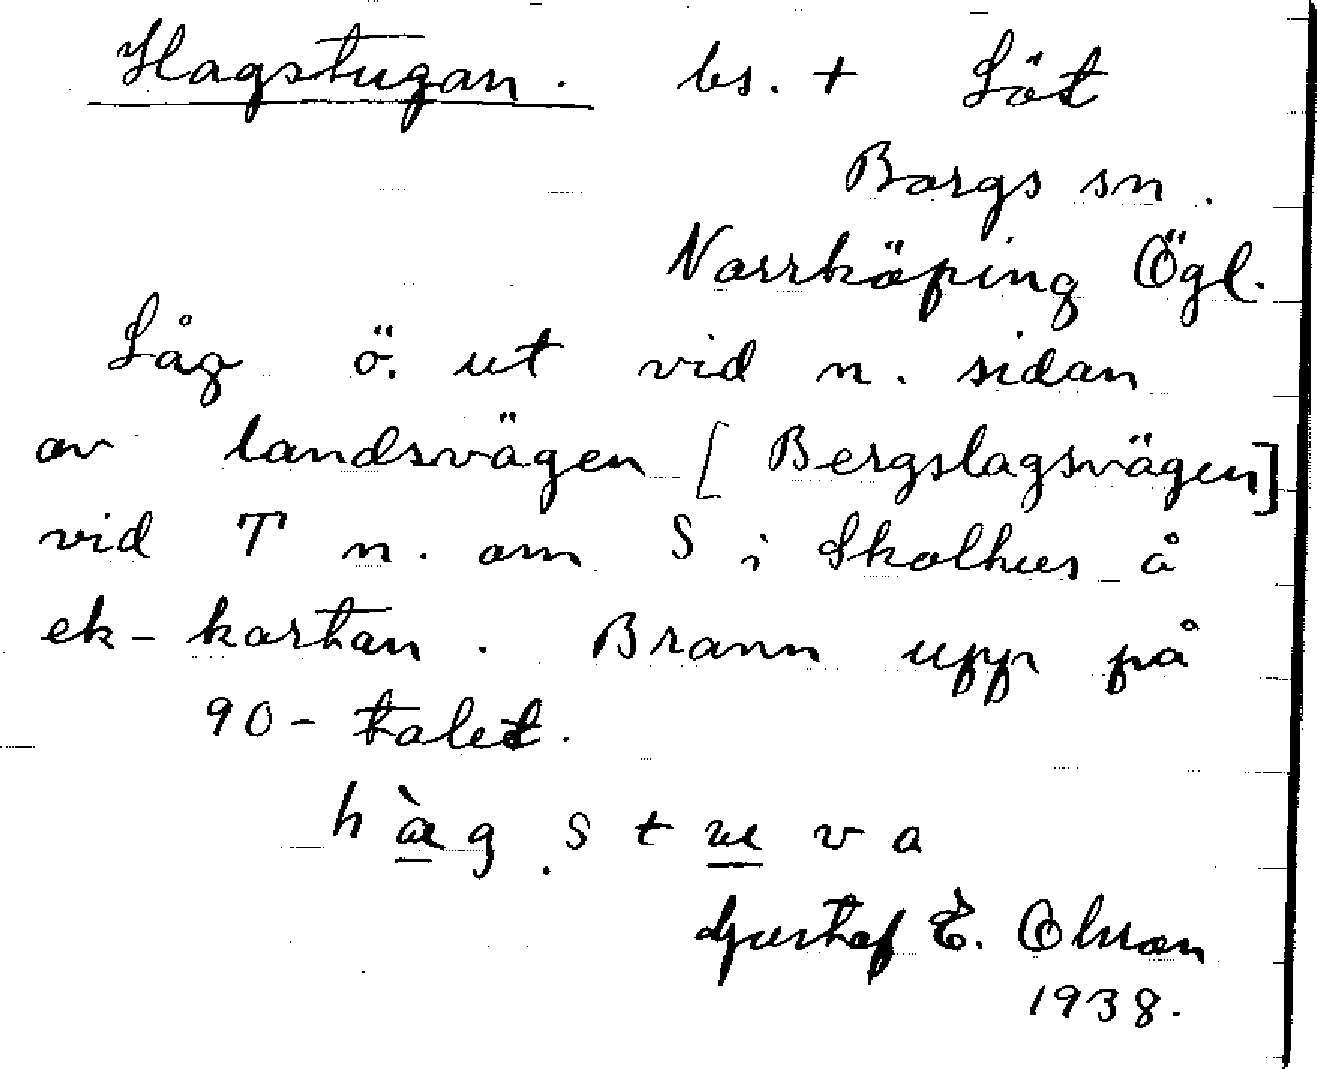 Hagstugan. bs. + Löt
Borgs sn.
Norrköping Ögl.
Låg ö. ut vid n. sidan
av landsvägen [Bergslagsvägen]
vid T n. om S i Skolhus å
ek-kartan. Brann upp på
90-talet.
hàg.stuva
Gustaf E. Olsson
1938.